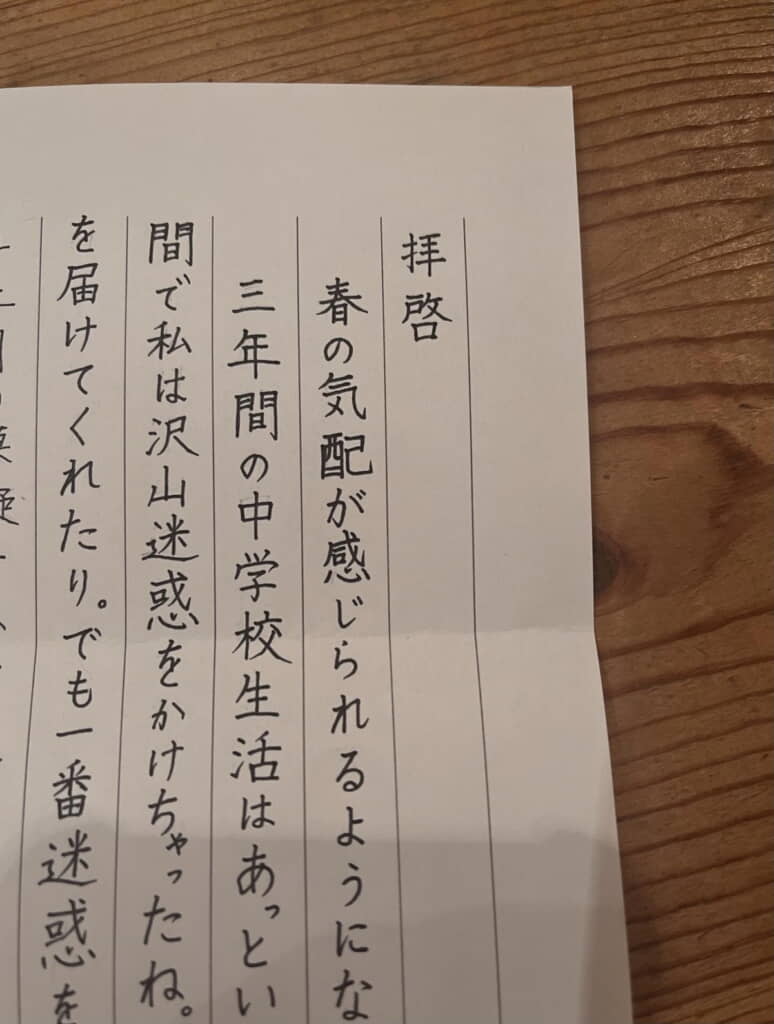 拝啓
春の気配が感じられるようにな
三年間の中学校生活はあっとい
間で私は沢山迷惑をかけちゃったね。
を届けてくれたり。でも一番迷惑を